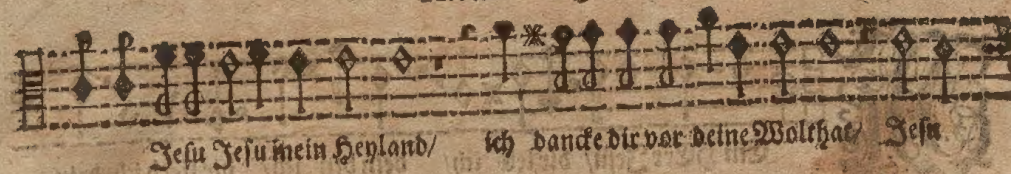 Jesu Jesu mein Heyland/ ich dancke dir vor deine Wolthat/ Jesu